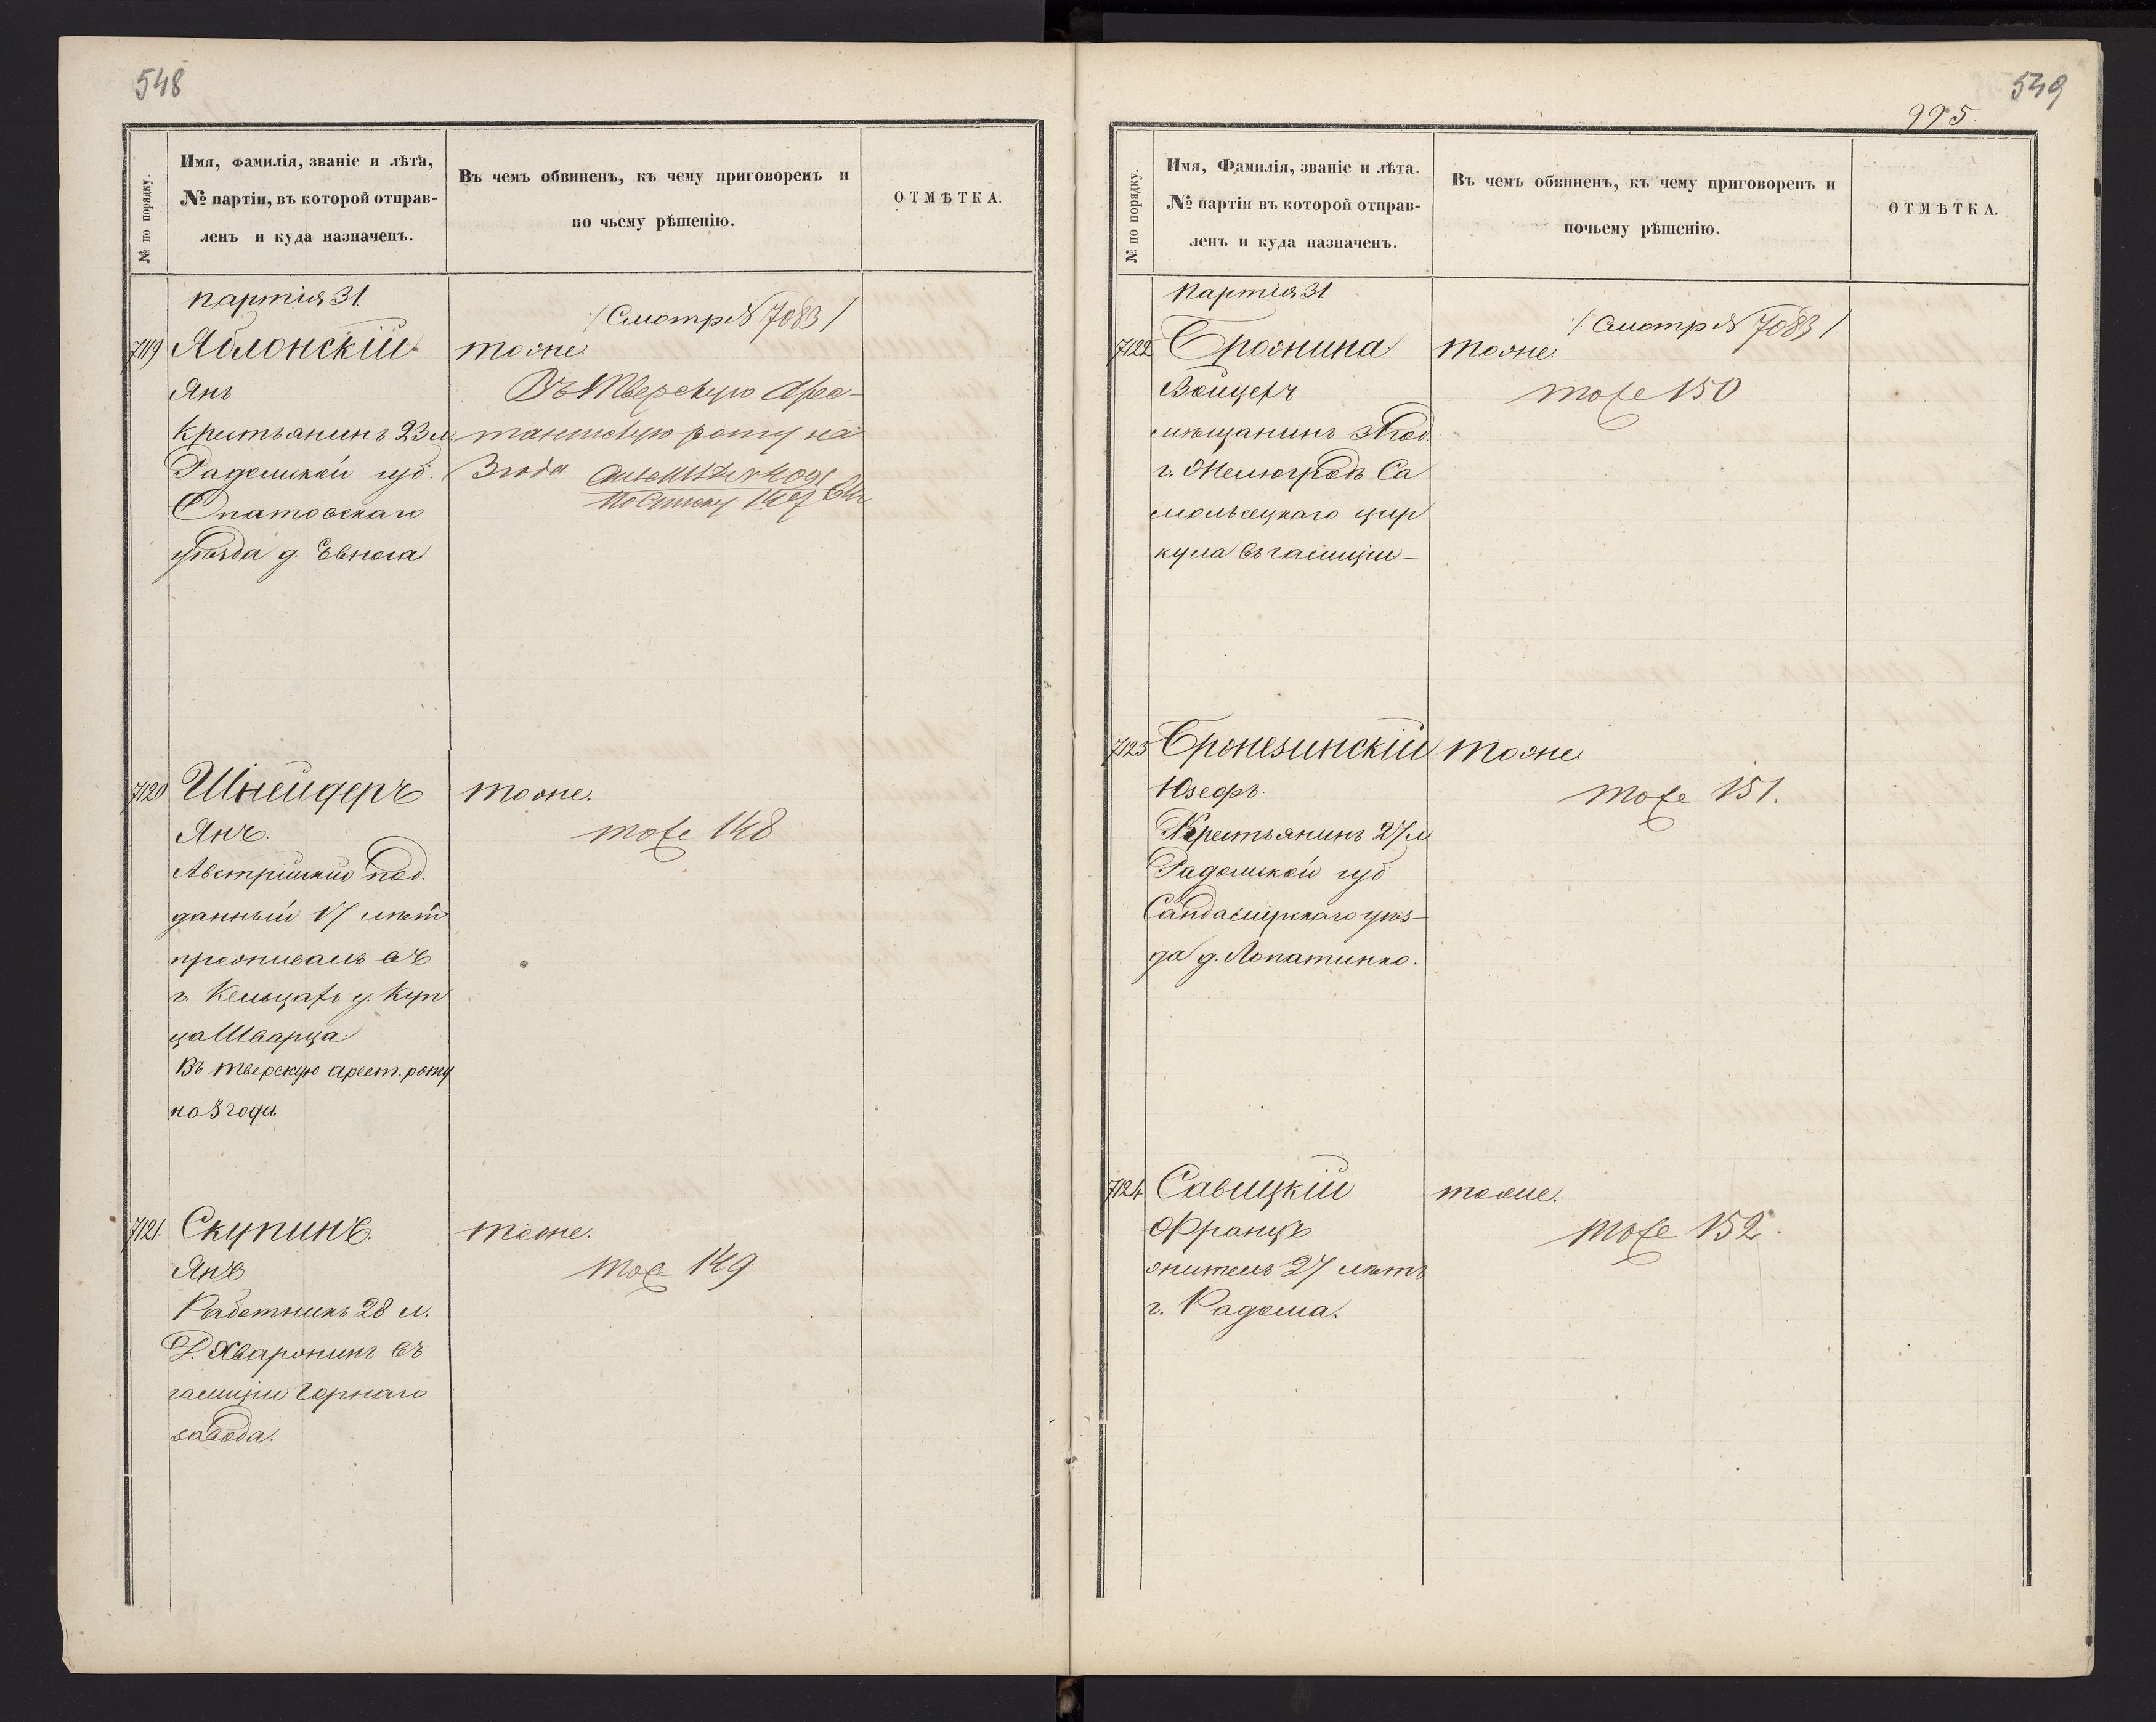 548
№ по порядку.
Имя, фамилія, званіе и лѣта,
№ партіи, въ которой отправ-
ленъ и куда назначенъ.
Въ чемъ обвиненъ, къ чему приговоренъ и
по чьему рѣшенію.
ОТМѢТКА.
партія 31.
/Смотр № 7083/
7119 Яблонскій тоже.
Янъ
Въ Тверскую Арес-
Крестьянинъ 23 л.
танскую роту на
Радомской губ.
3 года
Опатовскаго
по списку 147
уѣзда д.
7120 Шнейдеръ тоже.
Янъ.
тоже 148
Австрійскій под-
данный 17 лѣтъ
проживалъ въ
г. Кельцахъ у Куп
ца Шварца.
Въ тверскую арест. роту
на 3 года.
7121. Скупинъ. тоже.
Янъ
тоже 149
Работникъ 28 л.
Д. въ
галиціи Горнаго
завода.
549
995.
№ по порядку.
Имя, Фамилія, званіе и лѣта.
№ партіи въ которой отправ-
ленъ и куда назначенъ.
Въ чемъ обвиненъ, къ чему приговоренъ и
почьему рѣшенію.
ОТМѢТКА.
Партія 31
/Смотр № 7083/
7122 тоже.
Войцехъ
тоже 150
мѣщанинъ
г.
цир
кула въ галиціи
7123 Бржезинскій тоже
Юзефъ.
тоже 151.
Крестьянинъ 27 л
Радомской губ
Сандомирскаго уѣз-
да д. Лопатинко.
7124 Савицкій тоже.
Францъ
тоже 152.
житель 27 лѣтъ
г. Радома.